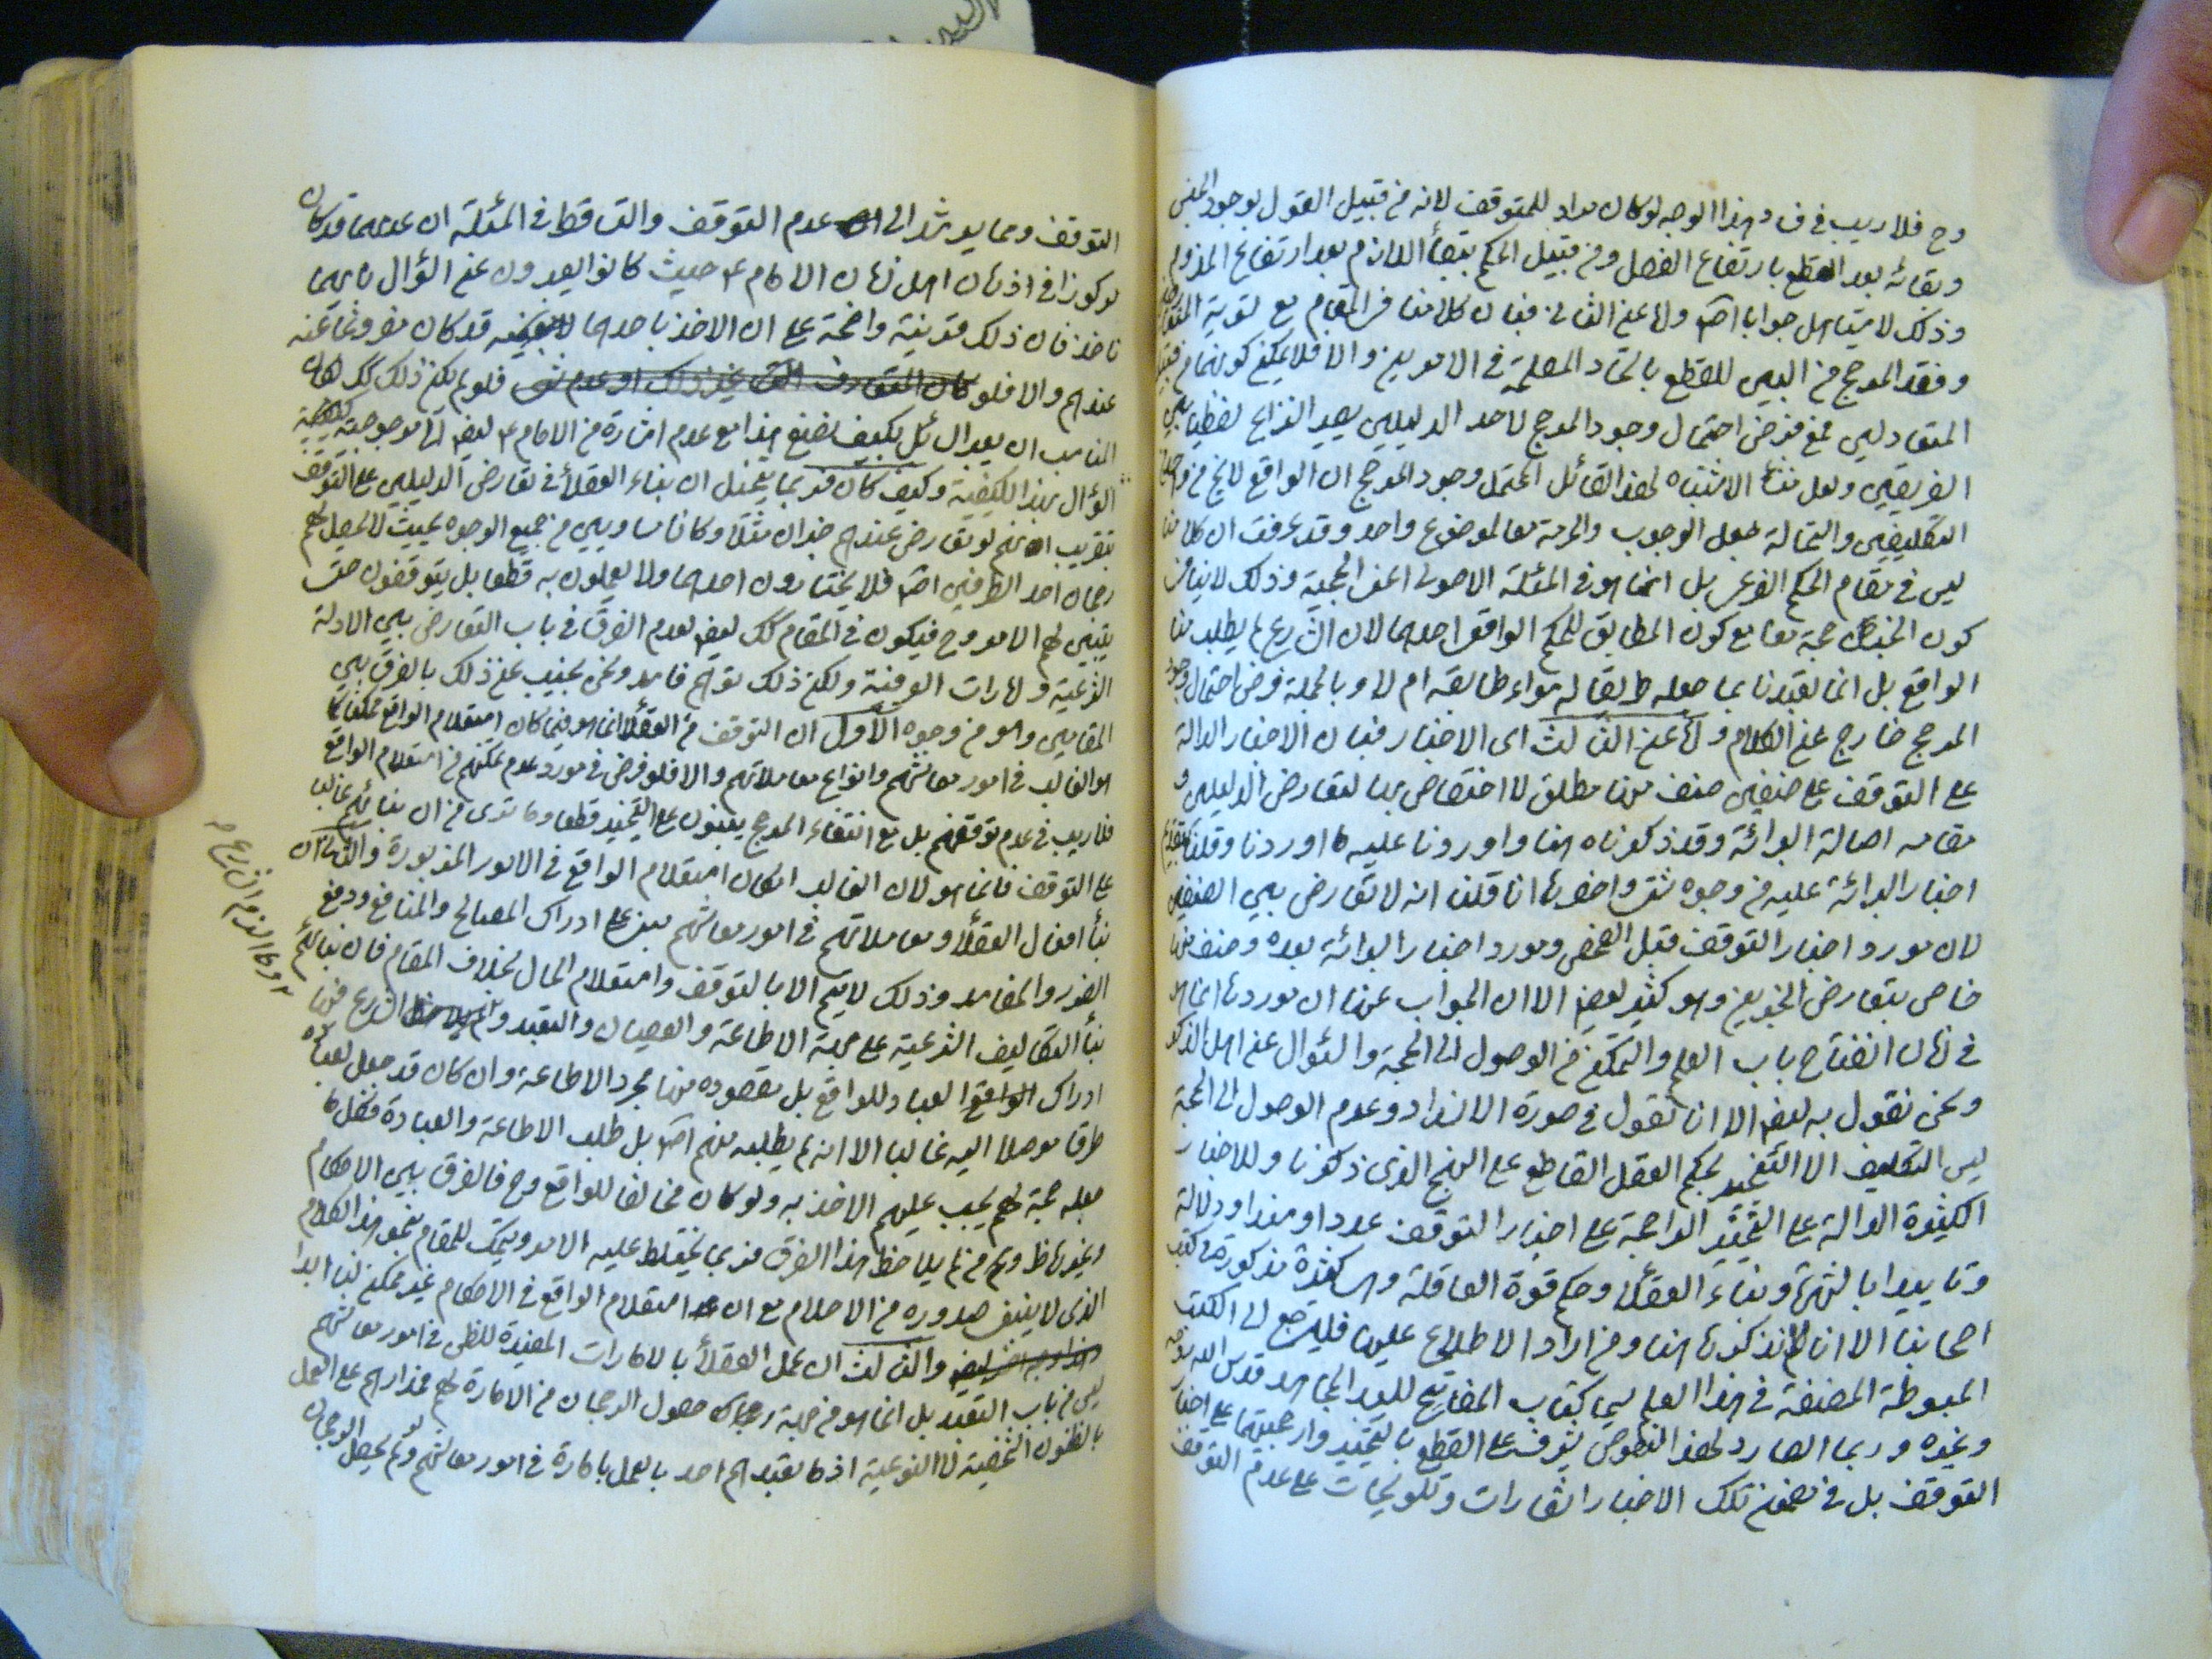 وح فلا ريب في فساد هذا الوجه لو كان مراد للمتوقف لانه من قبيل القول بوجود الجنس
وبقائه بعد القطع بارتفاع الفصل ومن قبيل الحكم ببقاء اللازم بعد ارتفاع الملزوم
وذلك لا يستاهل جوابا اصلا واما عن الثاني فبان كلامنا في المقام مع تسوية المتعارضين
وفقد المرجح من البين للقطع باتحاد المصلحة في الامرين والا فلا يمكن كونهما من
المتعادلين فمع فرض احتمال وجود المرجح لاحد الدليلين يصير النزاع لفظيا بين
الفريقين ولعل منشأ الاشتباه لهذا القائل المحتمل وجود المرجح ان الواقع لا يخ من احد
التكليفين واستحالة جعل الوجوب والحرمة معا لموضوع واحد وقد عرفت ان كلامنا
ليس في مقام الحكم الفرعي بل انما هو في المسئلة الاصولي اعني الحجية وذلك لا ينافي
كون الخبرين حجة معا مع كون المطابق للحكم الواقعي احدهما لان الشارع لم يطلب منا
الواقع بل انما تعبدنا بما جعله طريقا له سواء طابقه ام لا وبالجملة فرض احتمال وجود
المرجح خارج عن الكلام واما عن الثالث اى الاخبار فبان الاخبار الدالة
على التوقف على صنفين صنف منها مطلق لا اختصاص لها بتعارض الدليلين و
مقامه اصالة البرائة وقد ذكرناه هنا واوردنا عليه ما اوردنا وقلنا بتقديم
اخبار البرائة عليه من وجوه شتى واخصرها انا قلنا انه لا تعارض بين الصنفين
لان مورد اخبار التوقف قبل الفحص ومورد اخبار البرائة بعده وصنف منها
خاص بتعارض الخبرين وهو كثير ايضا الا ان الجواب عنها ان موردها انما هو
في زمان انفتاح باب العلم والتمكن من الوصول الى الحجة والسؤال عن اهل الذكر
ونحن نقول به ايضا الا انا نقول في صورة الانسداد وعدم الوصول الى الحجة
ليس التكليف الا التخيير لحكم العقل القاطع على النهج الذى ذكرنا وللاخبار
الكثيرة الدالة على التخيير الراجحة على اخبار التوقف عددا وسندا ودلالة
وتاييدا بالشهرة وبناء العقلاء وحكم قوة العاقلة وهى كثيرة مذكورة في كتب
اصحابنا الا انا لم نذكرها هنا ومن اراد الاطلاع عليها فليرجع الى الكتب
المبسوطة المصنفة في هذا العلم سيما كتاب المفاتيح للسيد المجاهد قدس الله روحه
وغيره وربما الصارد لهذا النصوص يشرف على القطع بالتخيير وارجحيتها على اخبار
التوقف بل في بعض تلك الاخبار اشارات وتلويحات على عدم التوقف
التوقف ومما يرشد الى عدم التوقف والتساقط في المسئلة ان عدمهما قد كان
مركوزا في اذهان اهل زمان الامام ع حيث كانوا يعدون عن السؤال بايهما
ناخذ فان ذلك قرينة واضحة على ان الاخذ باحدهما لا بعينه قد كان مفروغا عنه
عندهم والا فلو كان المتعارف فلو لم يكن ذلك كك لكان
المناسب ان يعد السائل بكيف نصنع هذا مع عدم اشارة من الامام ع ايضا
السؤال بهذا الكيفية وكيف كان فربما يتخيل ان بناء العقلاء في تعارض الدليلين على التوقف
بتقريب انهم لو تعارض عندهم خبران مثلا وكانا متساويين من جميع الوجوه بحيث لا يحصل لهم
رجحان احد الطرفين اصلا فلا يختارون احدهما ولا يعملون به قطعا بل يتوقفون حتى
يتبين لهم الامر وح فيكون في المقام كك ايضا لعدم الفرق في باب التعارض بين الادلة
الشرعية والامارات العرفية ولكن ذلك توهم فاسد ونحن نجيب عن ذلك بالفرق بين
المقامين وهو من وجوه الاول ان التوقف من العقلاء انما هو فيما كان استعلام الواقع ممكنا كما
هو الغالب في امور معاشهم وانواع معاملاتهم والا فلو فرض في مورد عدم تمكنهم من استعلام الواقع
فلا ريب في عدم توقفهم بل مع انتفاء المرجح يبنون على التخيير قطعا وما ترى من ان بنائهم غالبا
على التوقف فانما هو لان الغالب امكان استعلام الواقع في الامور المزبورة والثاني ان
بناء افعال العقلاء ومعاملاتهم في امور معاشهم مبنى على ادراك المصالح والمنافع ودفع
الضرر والمفاسد وذلك لا يتم الا بالتوقف واستعلام الحال بخلاف المقام فان بنائهم
بناء التكاليف الشرعية على جهة الاطاعة والعصيان والتعبد ولم الشارع منها
ادراك الواقع العباد للواقع بل مقصوده منها مجرد الاطاعة وان كان قد جعل لعباده
طرقا موصلا اليه غالبا الا انه لم يطلبه منهم اصلا بل طلب الاطاعة والعبادة فكل ما
جعله حجة لهم يجب عليهم الاخذ به ولو كان مخالفا للواقع وح فالفرق بين الاحكام
وغيرها ظ ولم من لم يلاحظ هذا الفرق فربما يختلط عليه الامر ويتمسك للمقام بنحو هذا الكلام
الذى لا ينبغى صدوره من الاعلام مع ان استعلام الواقع في الاحكام غير ممكن لنا ابدا
والثالث ان عمل العقلاء بالامارات المفيدة للظن في امور معاشهم
ليس من باب التعبد بل انما هو من جهة حصول الرجحان من الامارة لهم فمدارهم على العمل
بالظنون الشخصية لا النوعية اذ ما تعبدهم احد بالعمل بامارة في امور معاشهم ولو لم يحصل الرجحان
وما الزم الشارع